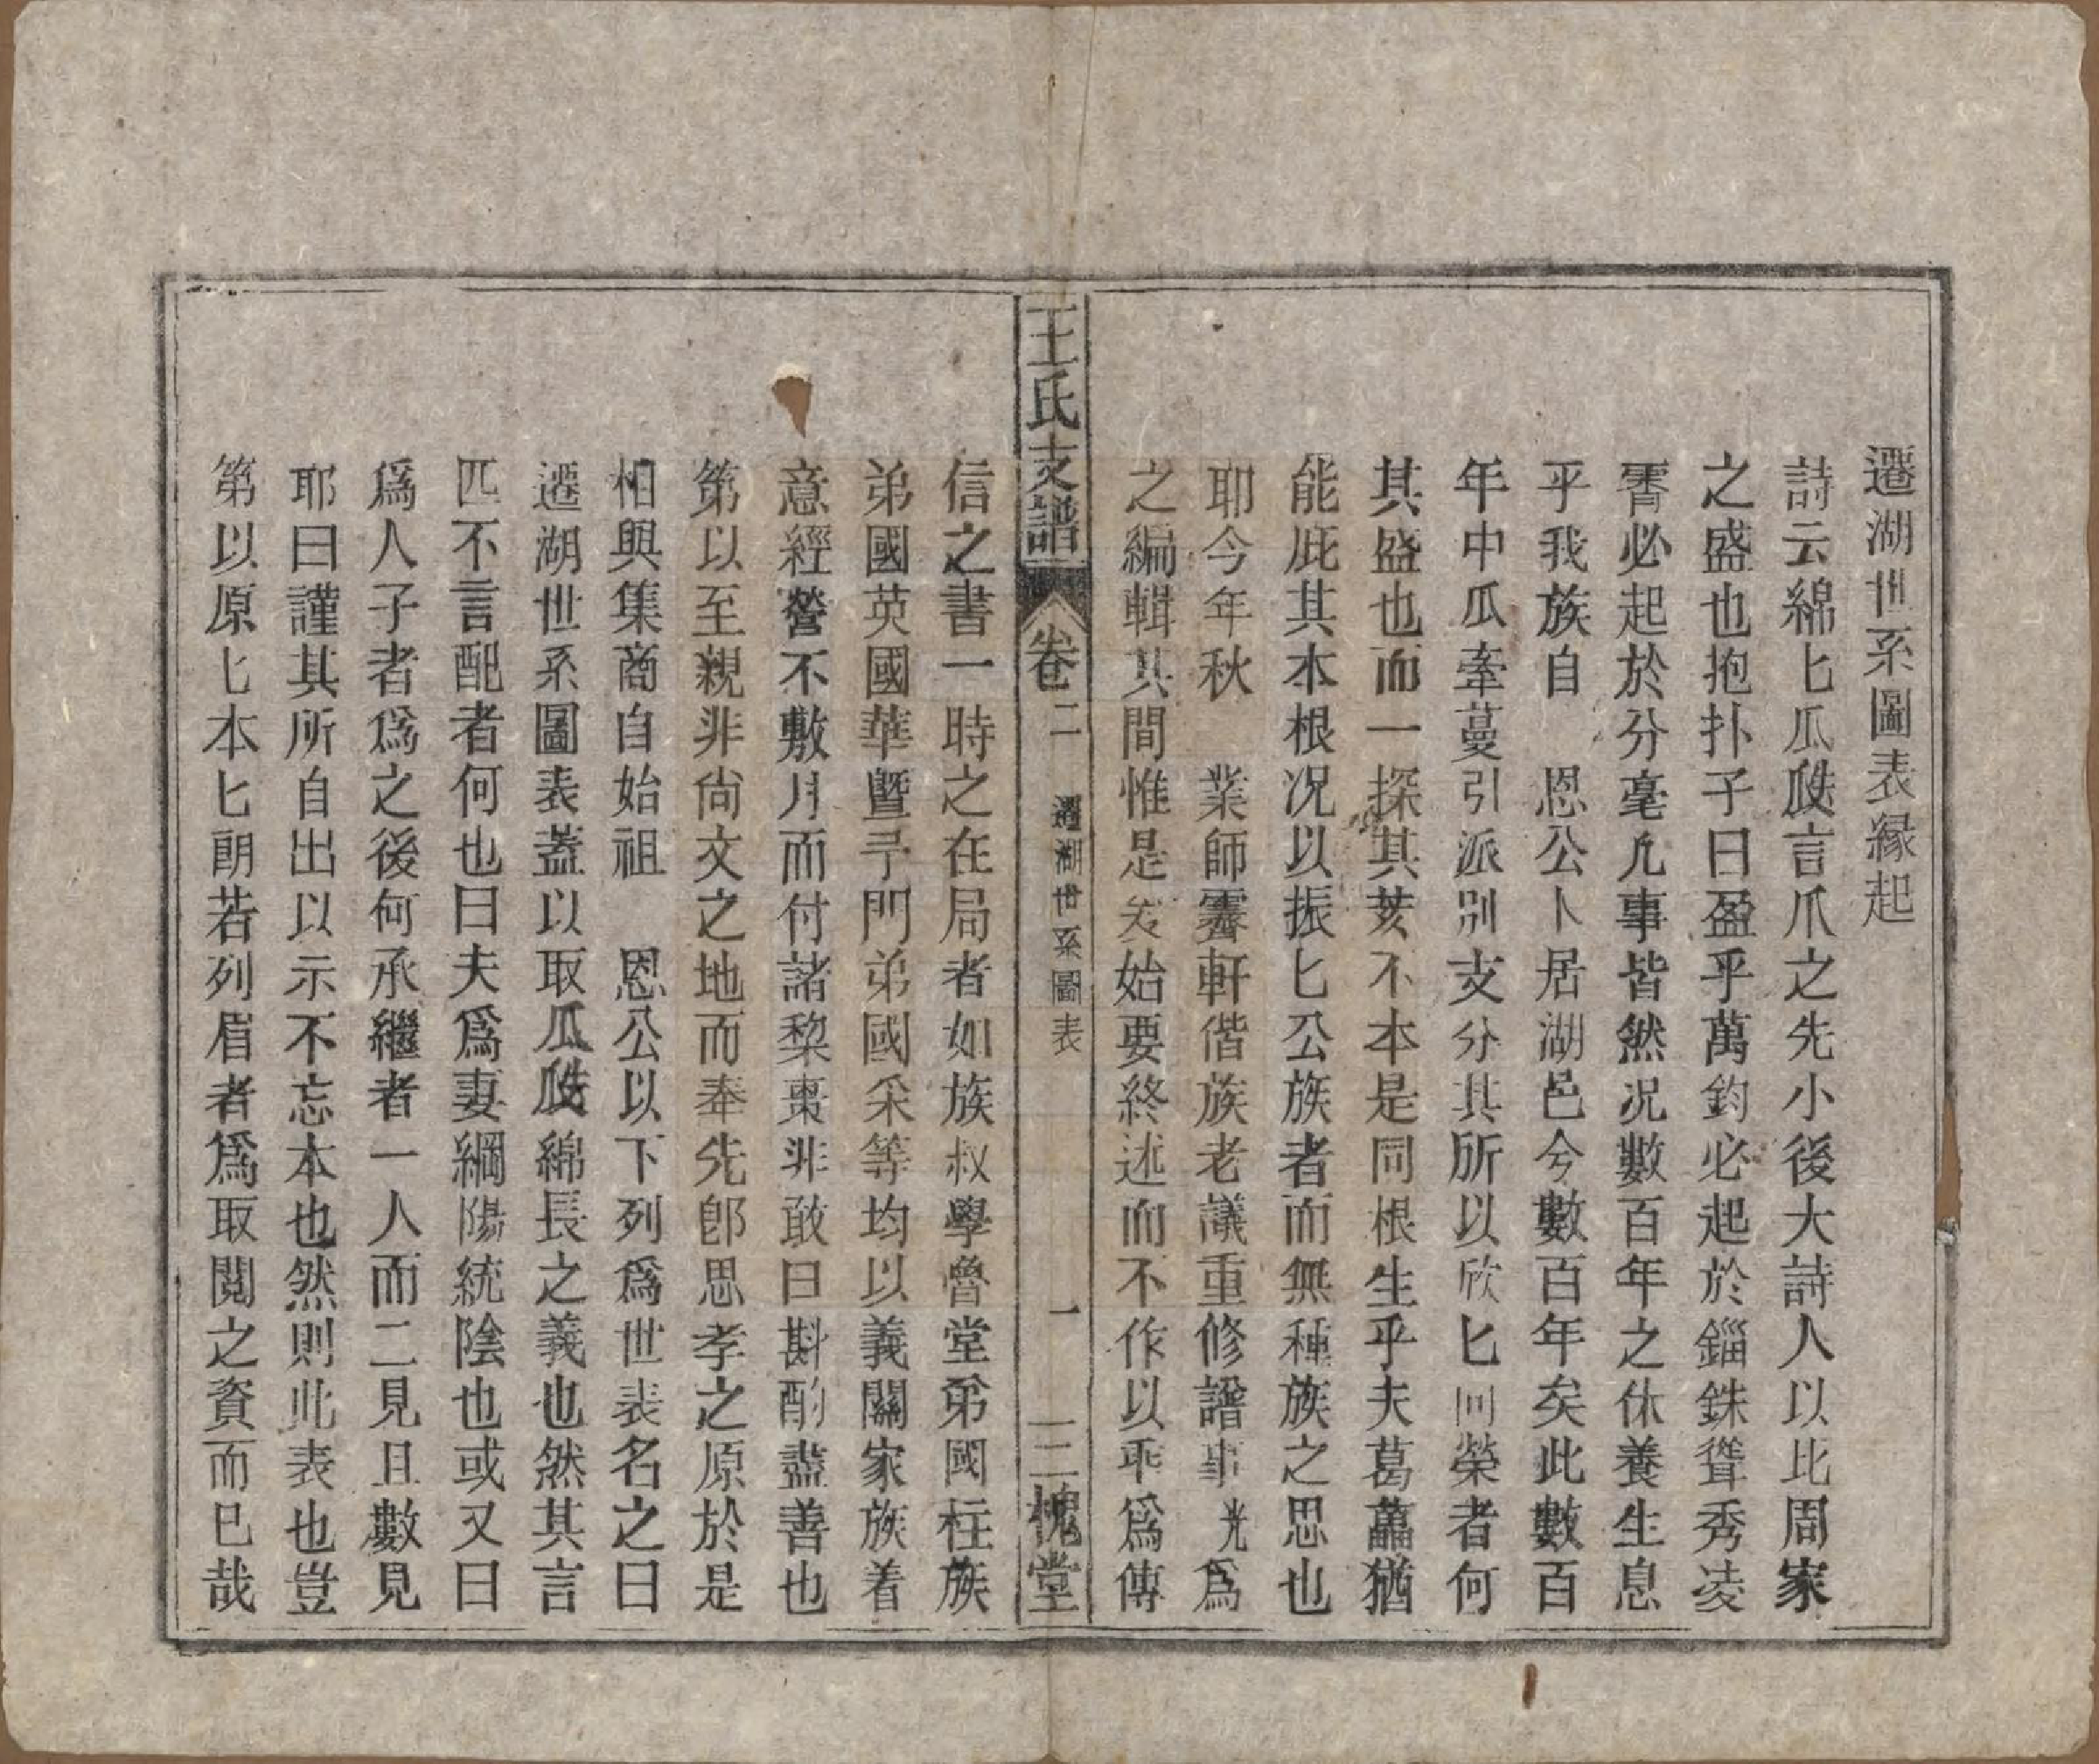 遷湖世系圖表緣起
詩云綿匕瓜瓞言瓜之先小後大詩人以比周家
之盛也抱扑子曰盈乎萬鈞必起於錙銖聳秀凌
霄必起於分毫凢事皆然况數百年之休養生息
乎我族自　恩公卜居湖邑兮數百年矣此數百
年中瓜牽蔓引派別支分其所以欣匕向榮者何
其盛也而一探其荄不本是同根生乎夫葛藟猶
能庇其本根况以振匕公族者而無種族之思也
耶今年秋　業師霽軒偕族老議重修譜事光爲
之編輯其間惟是爰始要終述而不作以乖爲傳
王氏支譜　卷二　遷湖世系圖表　一　三槐堂
信之書一時之在局者如族叔學魯堂弟國柱族
弟國英國華曁予門弟國采等均以義關家族着
意經營不敷月而付諸棃棗非敢曰斟酌盡善也
第以至親非尙文之地而奉先卽思孝之原於是
相與集商自始祖　恩公以下列爲世表名之曰
遷湖世系圖表蓋以取瓜瓞綿長之義也然其言
匹不言配者何也曰夫爲妻綱陽統陰也或又曰
爲人子者爲之後何承繼者一人而二見且數見
耶曰謹其所自出以示不忘本也然則此表也豈
第以原匕本匕朗若列眉者爲取閱之資而已哉